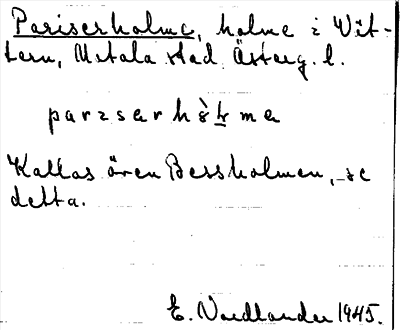 Pariserholme, holme i Vät-
tern, Motala stad Österg. l.
parisarhòlma
Kallas även Bessholmen, se
detta.
E. Nordlander 1945.